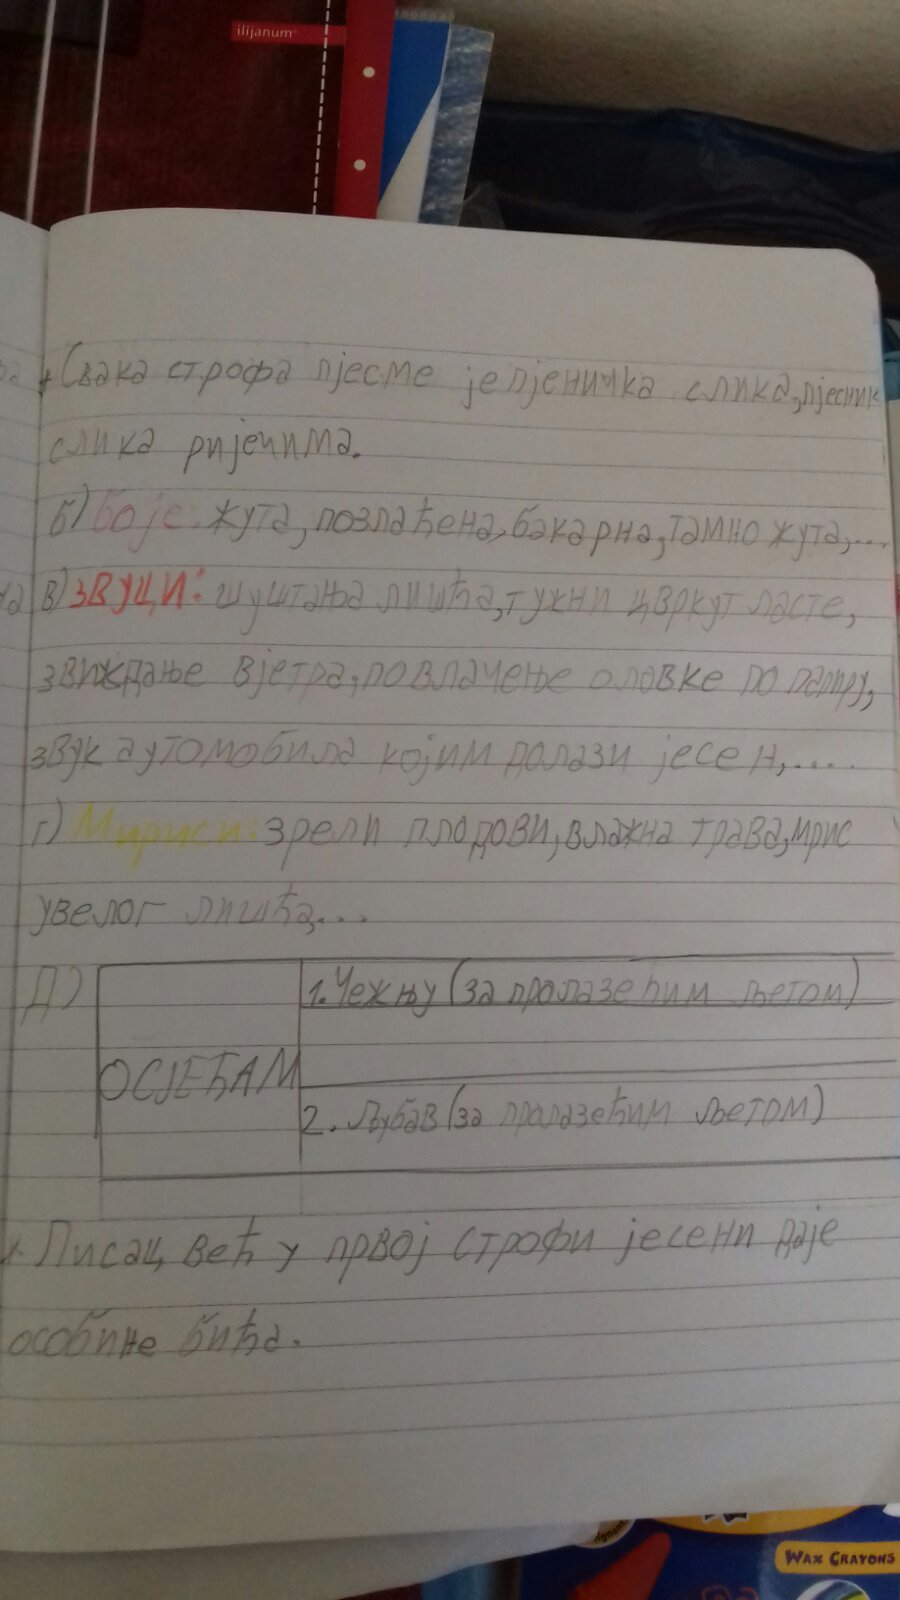 ilijanum
* Свака строфа пјесме је пјеничка слика, пјесник
слика ријечима.
б) Боје: жута, позлаћена, бакарна, тамно жута,...
в) ЗВУЦИ: шуштања лишћа, тужни цвркут ласте,
звиждање вјетра, повлачење оловке по папиру,
звук аутомобила којим долази јесен,....
г) Мириси: зрели плодови, влажна трава, мрис
увелог лишћа,...
Д) 1. Чежњу (за пролазећим љетом)
ОСЈЕЋАМ
2. Љубав (за пролазећим љетом)
* Писац већ у првој строфи јесени даје
особине бића.
WAX CRAYONS